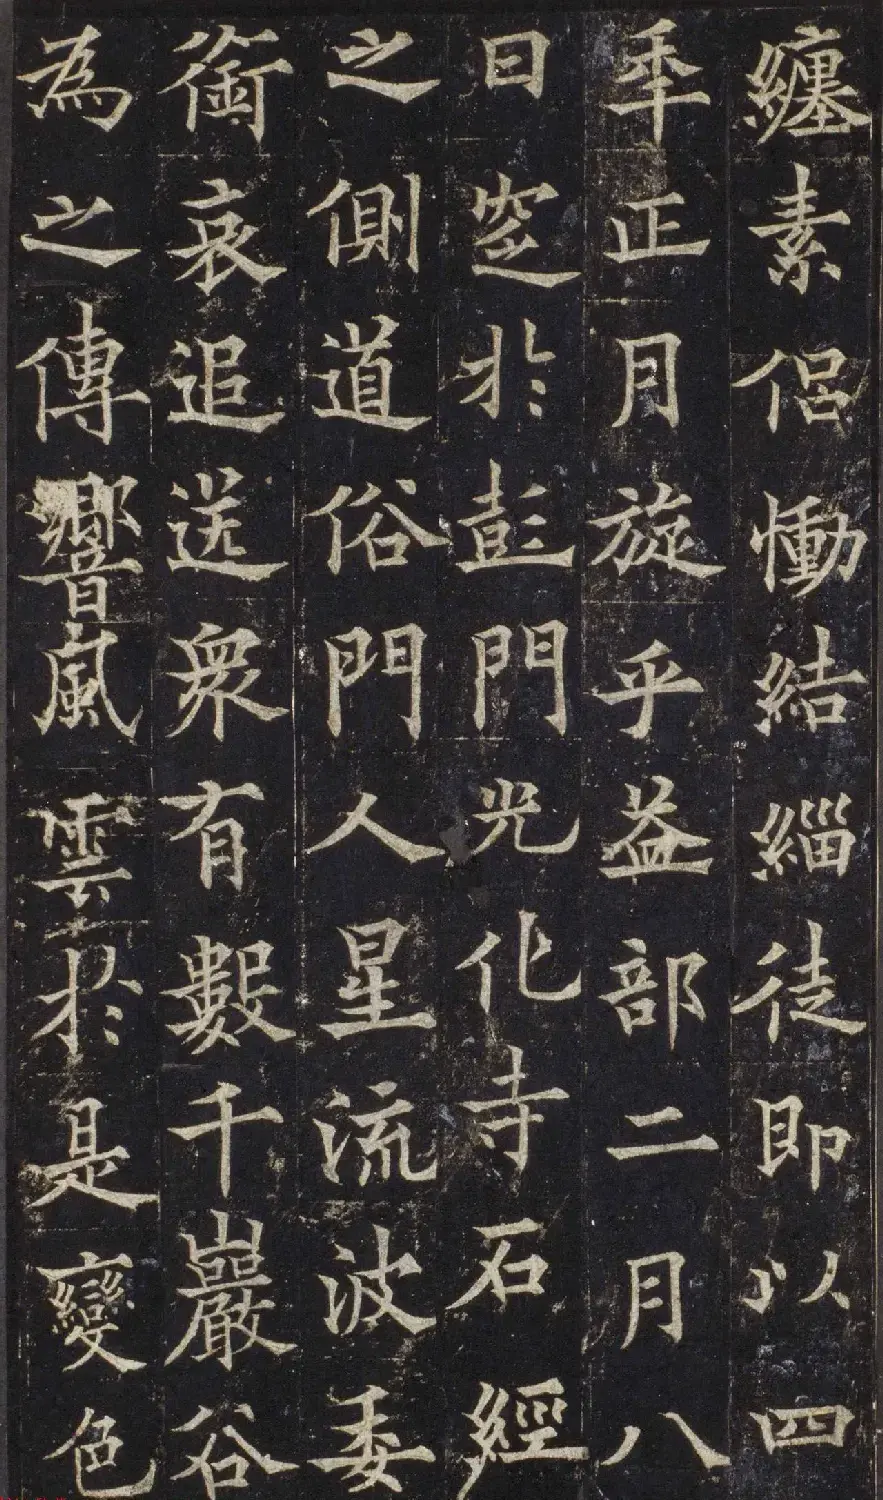 纏素侣慟結緇徒即以四
秊正月旋乎益部二月八
日窆於彭門光化寺石經
之側道俗門人星流波委
銜哀追送衆有數千巖谷
為之傳響嵐雲於是變色